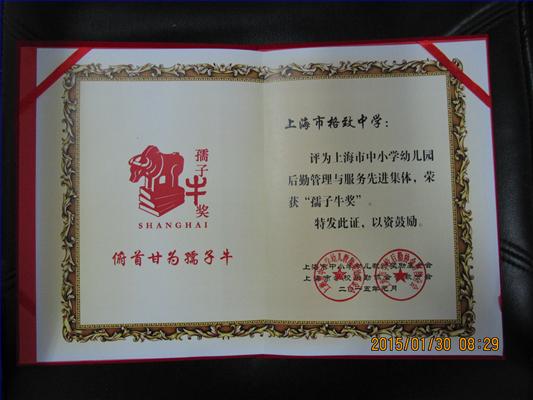 孺子牛奖
SHANGHAI
俯首甘为孺子牛
上海市格致中学：
评为上海市中小学幼儿园
后勤管理与服务先进集体，荣
获“孺子牛奖”。
特发此证，以资鼓励。
上海市中小学幼儿教师奖励基金会
二〇一五年元月
2015/01/30 08:29